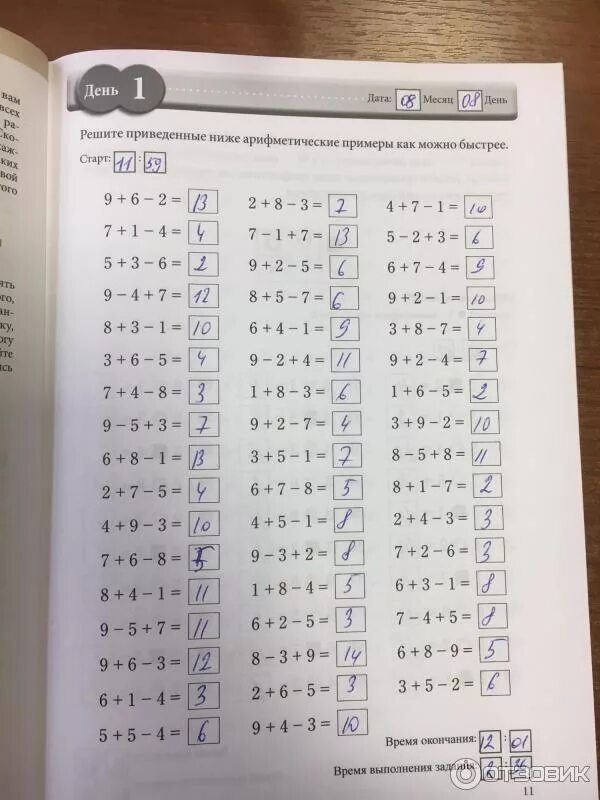 вам
всех
ра-
Ско-
каж-
ских
рвой
того
ять
ого,
ан-
ку,
огу
йте
ись
День 1
Дата: 08 Месяц 08 День
Решите приведенные ниже арифметические примеры как можно быстрее.
Старт: 11 : 59
9 + 6 − 2 = 13 2 + 8 − 3 = 7 4 + 7 − 1 = 10
7 + 1 − 4 = 4 7 − 1 + 7 = 13 5 − 2 + 3 = 6
5 + 3 − 6 = 2 9 + 2 − 5 = 6 6 + 7 − 4 = 9
9 − 4 + 7 = 12 8 + 5 − 7 = 6 9 + 2 − 1 = 10
8 + 3 − 1 = 10 6 + 4 − 1 = 9 3 + 8 − 7 = 4
3 + 6 − 5 = 4 9 − 2 + 4 = 11 9 + 2 − 4 = 7
7 + 4 − 8 = 3 1 + 8 − 3 = 6 1 + 6 − 5 = 2
9 − 5 + 3 = 7 9 + 2 − 7 = 4 3 + 9 − 2 = 10
6 + 8 − 1 = 13 3 + 5 − 1 = 7 8 − 5 + 8 = 11
2 + 7 − 5 = 4 6 + 7 − 8 = 5 8 + 1 − 7 = 2
4 + 9 − 3 = 10 4 + 5 − 1 = 8 2 + 4 − 3 = 3
7 + 6 − 8 = 5 9 − 3 + 2 = 8 7 + 2 − 6 = 3
8 + 4 − 1 = 11 1 + 8 − 4 = 5 6 + 3 − 1 = 8
9 − 5 + 7 = 11 6 + 2 − 5 = 3 7 − 4 + 5 = 8
9 + 6 − 3 = 12 8 − 3 + 9 = 14 6 + 8 − 9 = 5
6 + 1 − 4 = 3 2 + 6 − 5 = 3 3 + 5 − 2 = 6
5 + 5 − 4 = 6 9 + 4 − 3 = 10
Время окончания: 12 : 01
Время выполнения задания: :
11
ОТЗОВИК